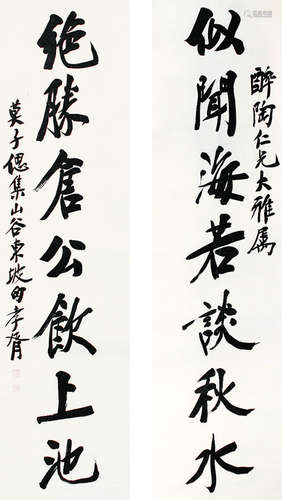 醉陶仁兄大雅属
似聞海若談秋水
絶勝倉公飲上池
莫子偲集山谷東坡句孝胥